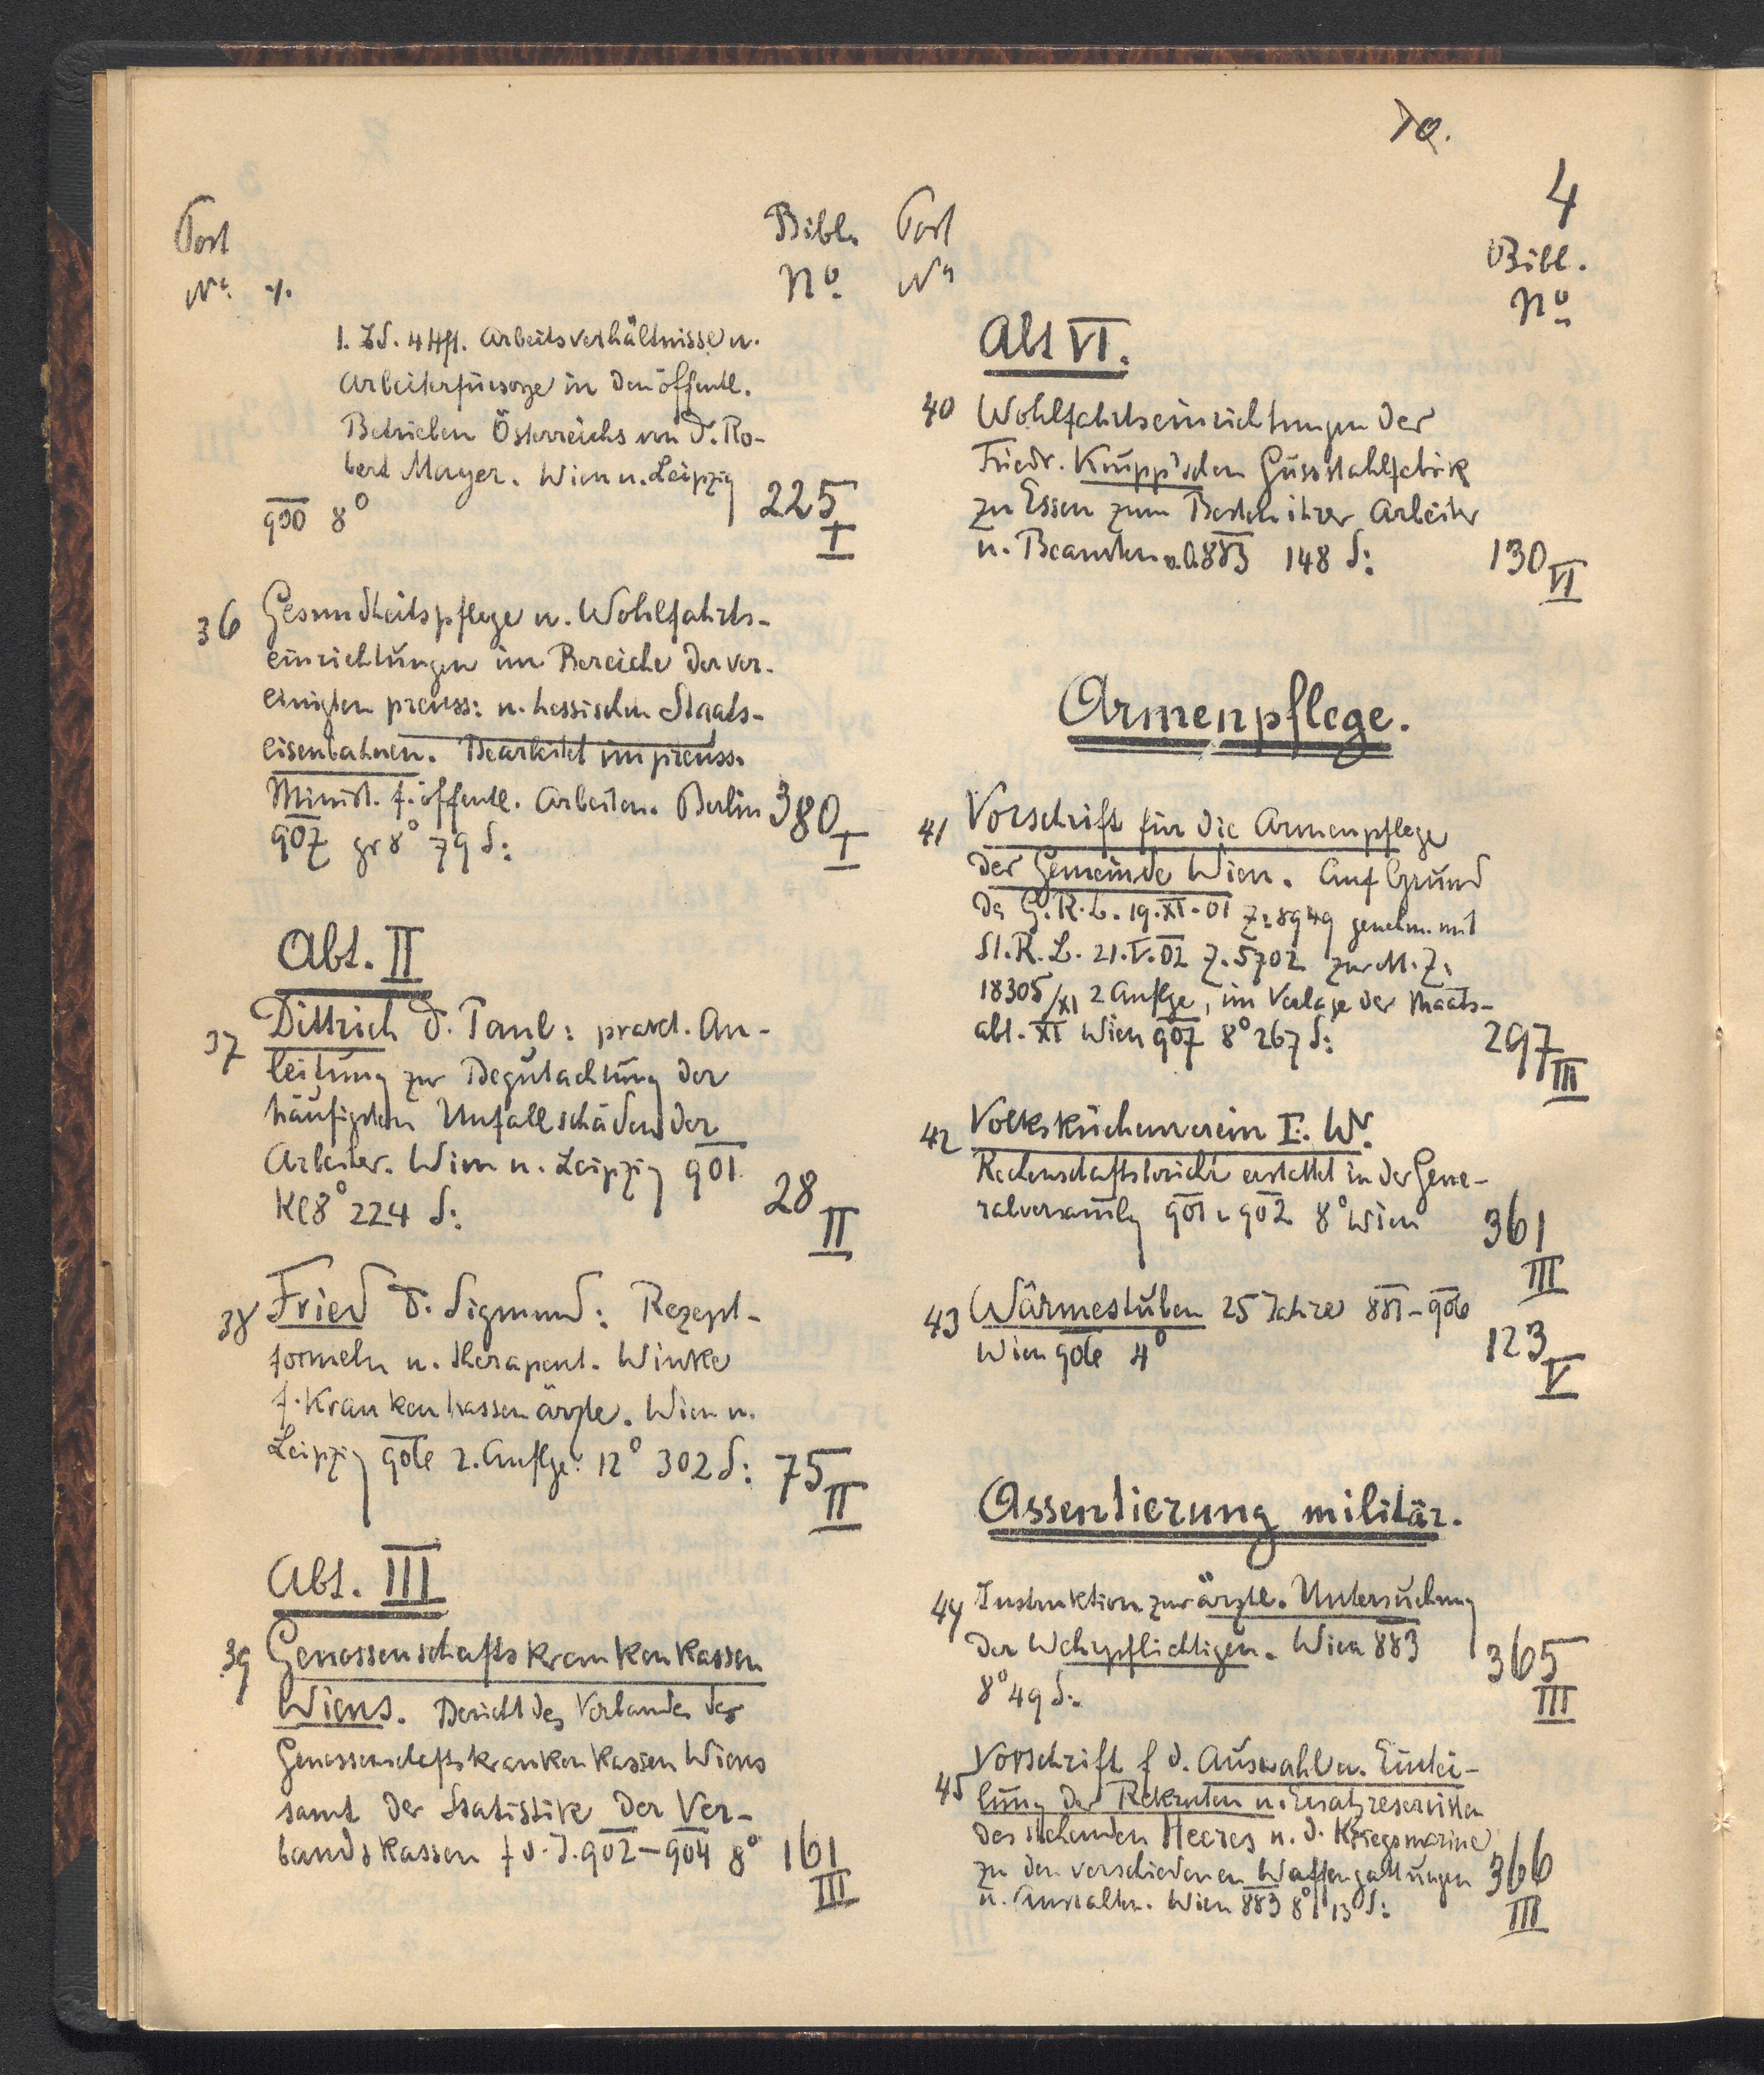 4
Post
No ./.
Bibl.
No
1. Bd. 4 Hft. Arbeitsverhältnisse u.
Arbeiterfürsorge in den öffentl.
Betrieben Österreichs von D. Ro-
bert Mayer. Wien u. Leipzig
900 8°
225
I
36 Gesundheitspflege u. Wohlfahrts-
einrichtungen im Bereiche der ver-
einigten preuss: u. hessischen Staats-
eisenbahnen. Bearbeitet im preuss.
Minist. f. öffentl. Arbeiten. Berlin
907 gr 8° 79 S:
380
I
Abt. II
37 Dittrich D. Paul: prakt. An-
leitung zur Begutachtung der
häufigsten Unfallschäden der
Arbeiter. Wien u. Leipzig 901
Kl 8° 224 S:
28
II
38 Fried D. Sigmund: Rezept-
formeln u. therapeut. Winke
f. Krankenkassenärzte. Wien u.
Leipzig 906 2. Auflge: 12° 302 S:
75
II
Abt. III
39 Genossenschaftskrankenkassen
Wiens. Bericht des Verbandes der
Genossenschaftskrankenkassen Wiens
samt der Statistik der Ver-
bandskassen f d. J. 902–904 8°
161
III
Post
No
Bibl.
No
Abt VI.
40 Wohlfahrtseinrichtungen der
Friedr. Krupp'schen Gussstahlfabrik
zu Essen zum Besten ihrer Arbeiter
u. Beamten 883 148 S:
130
VI
Armenpflege.
41 Vorschrift für die Armenpflege
der Gemeinde Wien. Auf Grund
des G. R. B. 19. XI. 01 Z: 8949 genehm. mit
St. R. B. 21. V. 02 Z. 5702 zur M. Z.
18305/XI 2 Auflge, im Verlage der Maats-
abt. XI Wien 907 8° 267 S:
297
III
42 Volksküchenverein I. Wr.
Rechenschaftsbericht erstattet in der Gene-
ralversamlg 901 u 902 8° Wien
361
III
43 Wärmestuben 25 Jahre 881–906
Wien 906 4°
123
V
Assentierung militär.
44 Instruktion zur ärztl. Untersuchung
der Wehrpflichtigen. Wien 883
8° 49 S:
365
III
45 Vorschrift f d. Auswahl u. Eintei-
lung der Rekruten u. Ersatzreservisten
des stehenden Heeres u. d. Kriegsmarine
zu den verschiedenen Waffengattungen
u. Anstalten. Wien 883 8° 13 S:
366
III